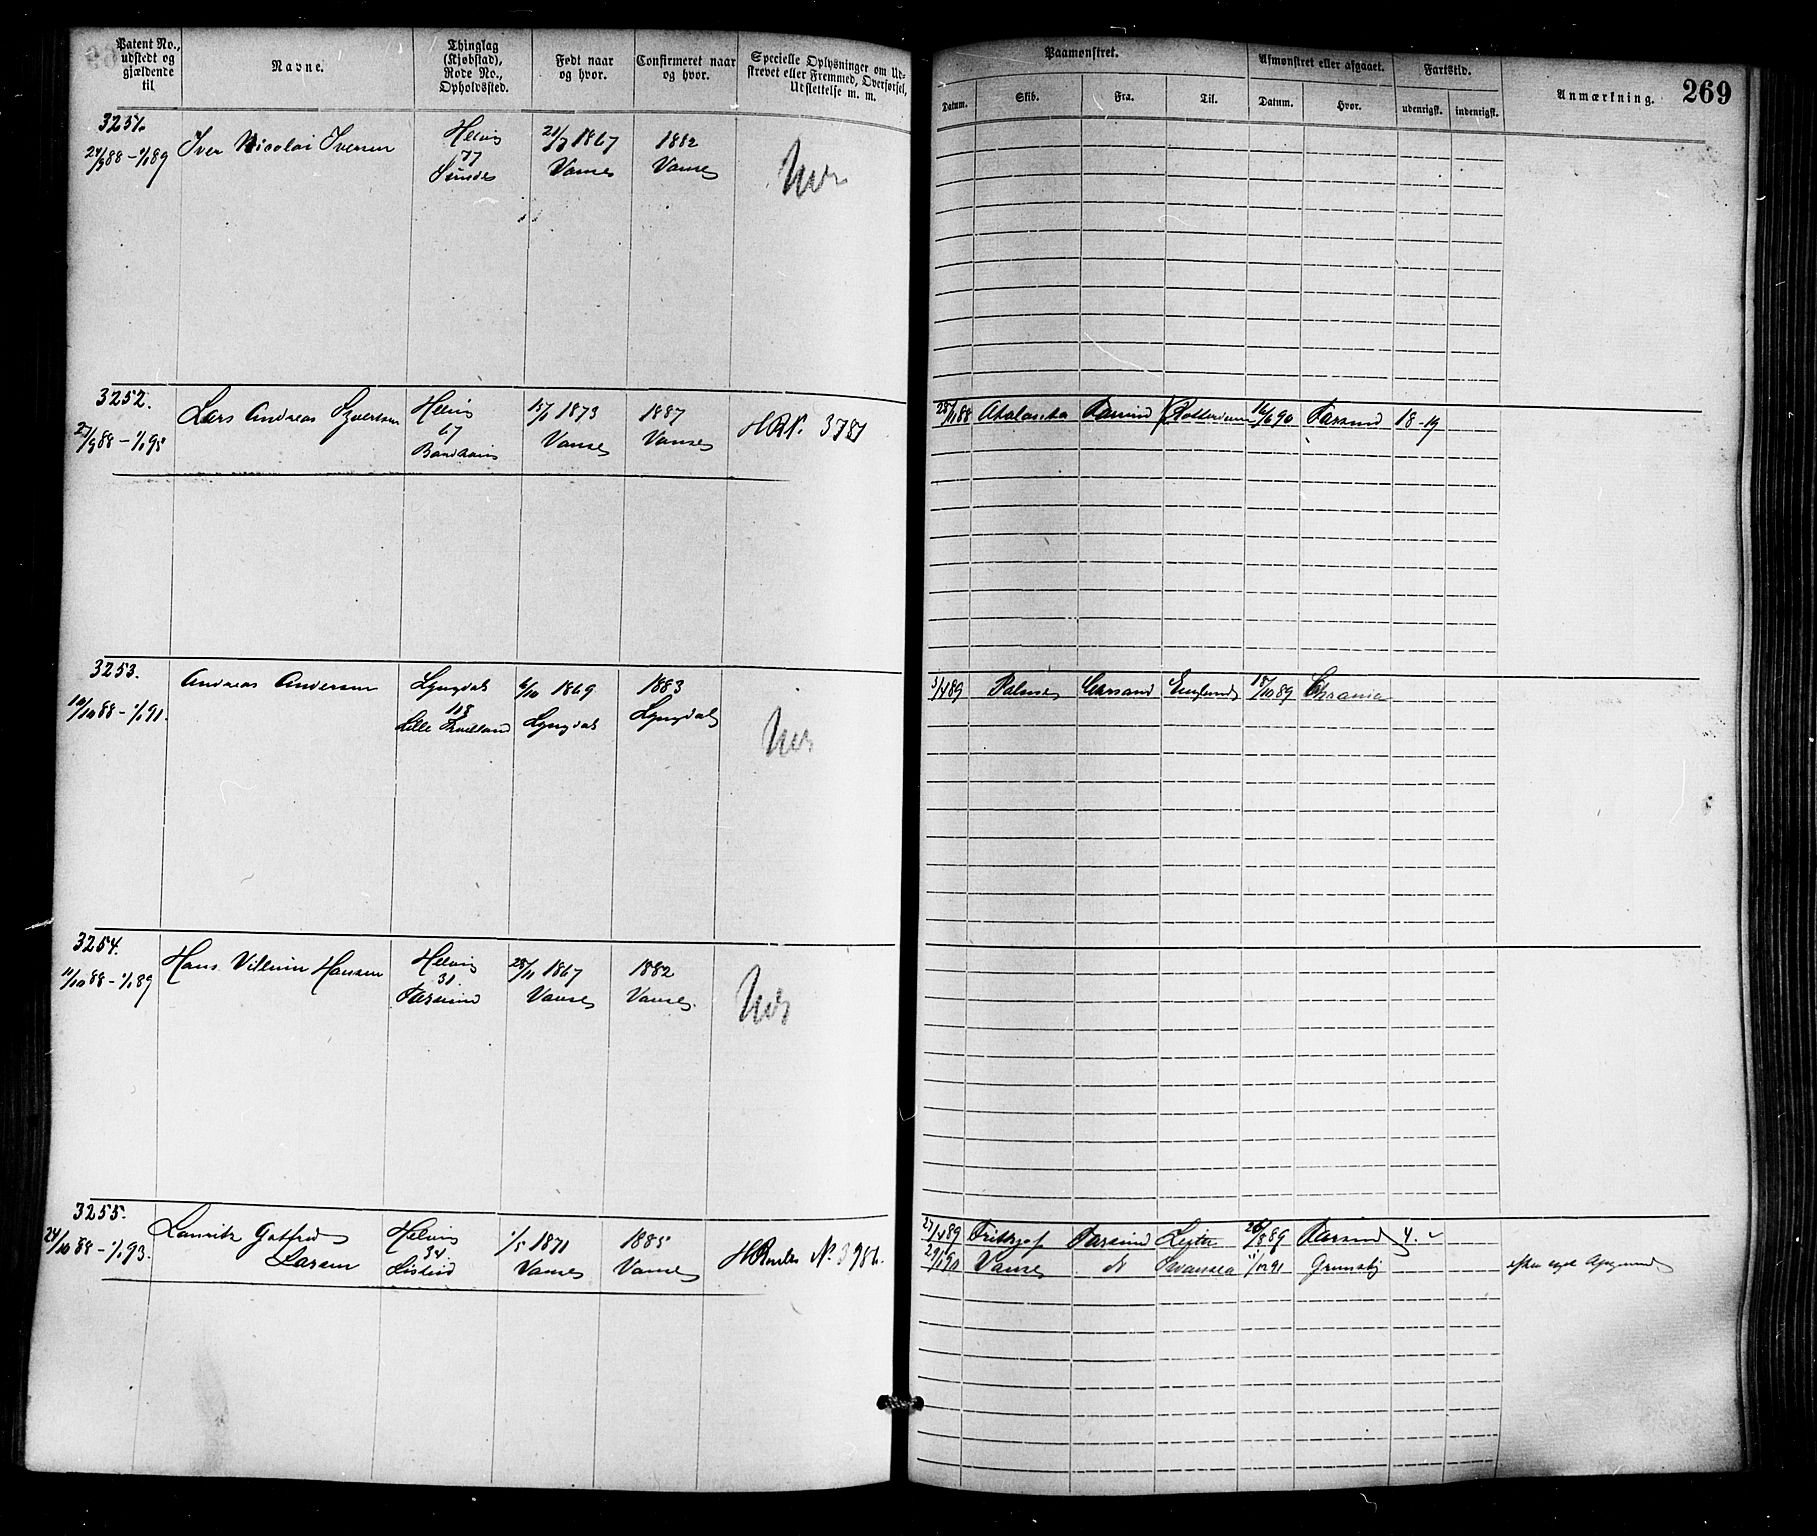 Patent No., udstedt og gjældende til
Navne.
Thinglag (Kjøbstad), Rode No., Opholdssted.
Født naar og hvor.
Confirmeret naar og hvor.
Specielle Oplysninger om Udskrevet eller Fremmed, Overførsel, Udslettelse m. m.
Paamønstret.
Datum.
Skib.
Fra.
Til.
Afmønstret eller afgaaet.
Datum.
Hvor.
Fartstid.
udenrigsk.
indenrigsk.
Anmærkning.
269
3251.
24/9 88 - 1/1 89
Iver Nicolai Iversen
Helvig
77
Sunde
21/7 1867
Vanse
1882
Vanse
3252.
27/9 88 - 1/1 95
Lars Andreas Syversen
Helvig
67
15/1 1873
Vanse
1887
Vanse
HRN. 3781
28/11 88
Farsund
Rotterdam
16/6 90
Farsund
18-19
3253.
10/10 88 - 1/1 91.
Andreas Andersen
Lyngdal
118
Lille
6/10 1869
Lyngdal
1883
Lyngdal
3/4 89
Palme
England
18/10 89
Chrania
3254.
11/10 88 - 1/1 89
Hans Villum Hansen
Helvig
31.
Farsund
28/11 1867
Vanse
1882
Vanse.
3255.
24/10 88 - 1/1 93.
Lauritz Gotfred
Larsen
Helvig
34.
1/5 1871
Vanse
1885
Vanse
27/4 89
Fritzjof
Farsund
26/8 89
Farsund
4.
29/1 90
Vanse
do
Swansea
1/12 91
Grimsby